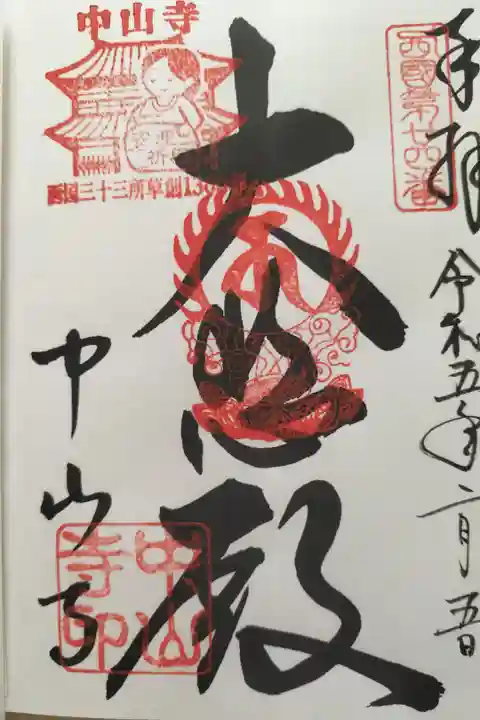 奉拝
西國第廿四番
令和五年二月五日
大悲殿
中山寺
西国三十三所草創13
中山寺
中山寺印